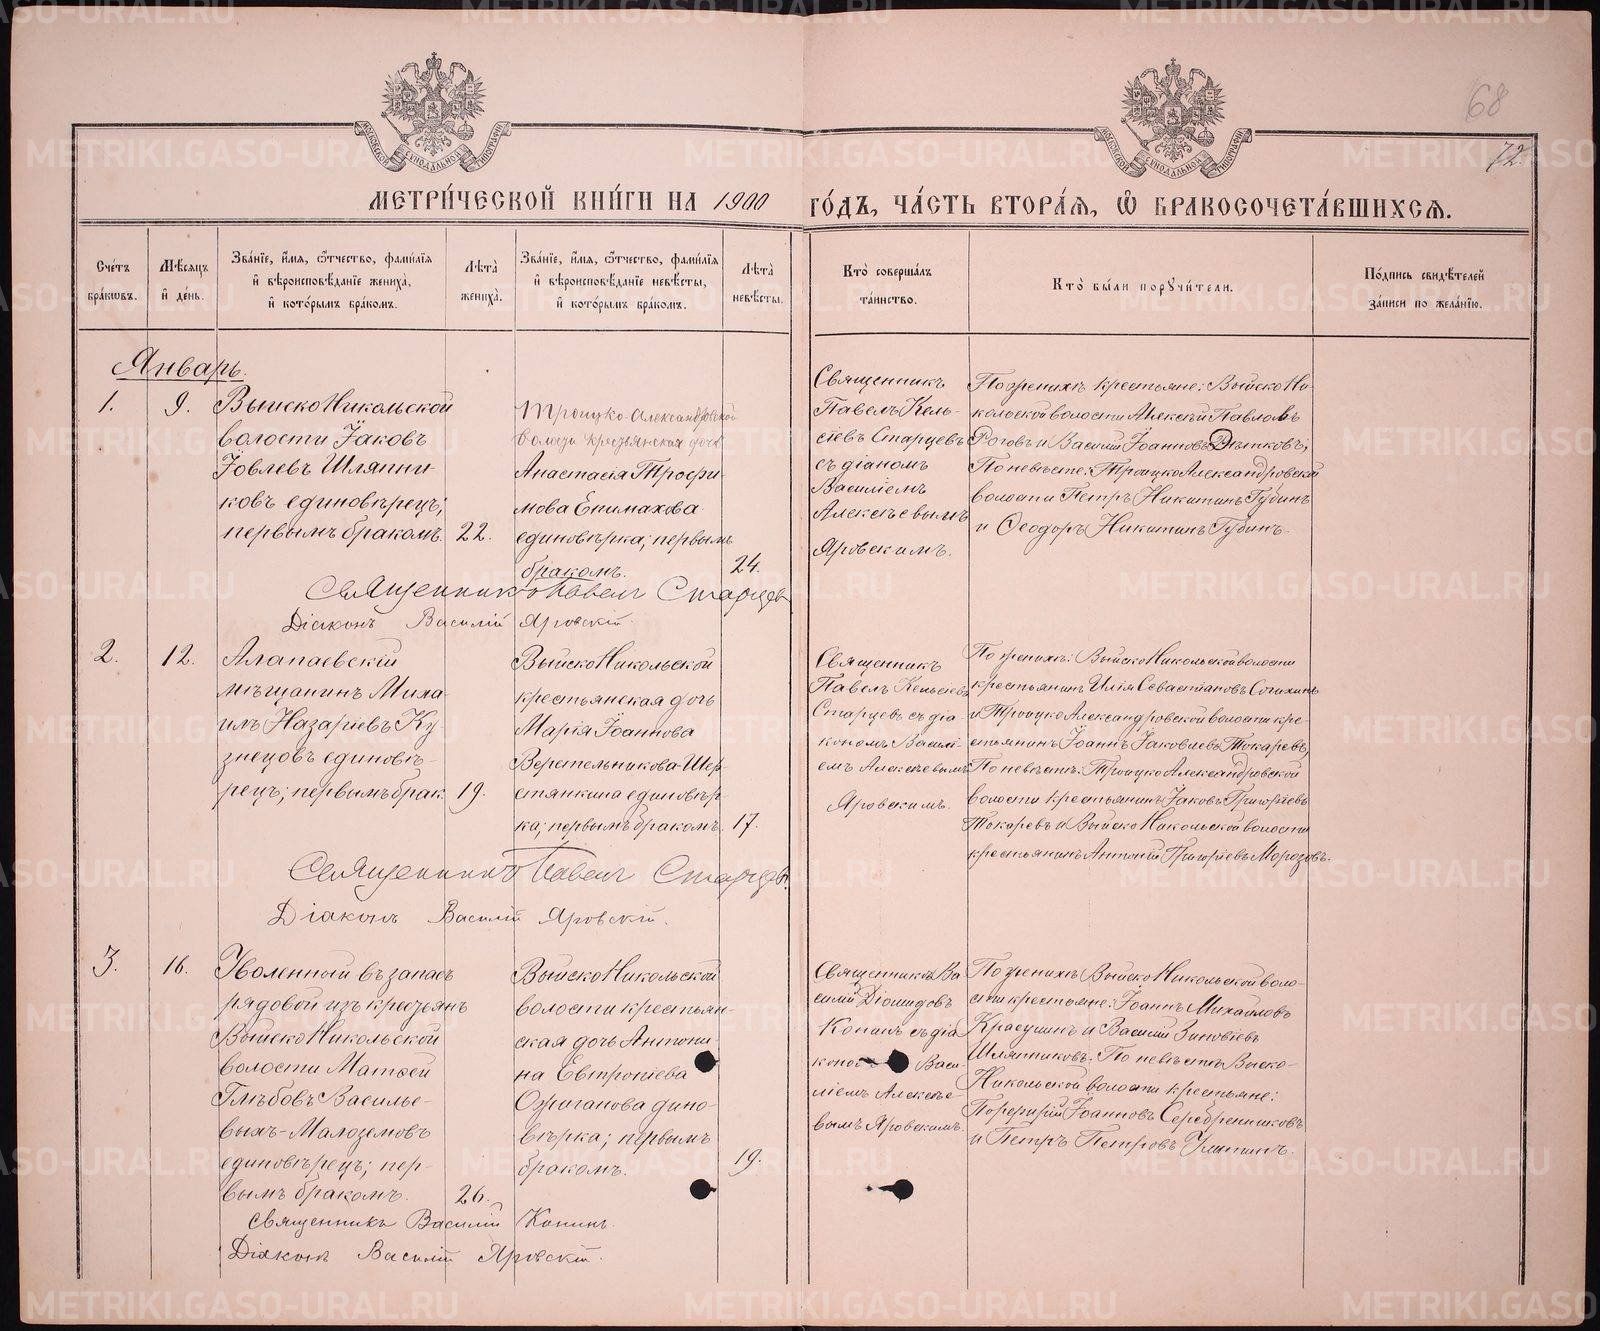 68
72.
МОСКОВСКОЙ СѴНОДАЛЬНОЙ ТИПОГРАФІИ
МОСКОВСКОЙ СѴНОДАЛЬНОЙ ТИПОГРАФІИ
МЕТРИ́ЧЕСКОЙ КНИ́ГИ НА 1900 ГО́ДЪ, ЧА́СТЬ ВТОРА́Я, Ѡ БРАКОСОЧЕТА́ВШИХСЯ.
Сче́тъ
бра́кѡвъ.
Мѣ́сяцъ
и҆ де́нь.
Зва́нїе, и҆́мя, ѻ҆́тчество, фами́лїя
и҆ вѣроисповѣ́данїе жениха̀,
и҆ кото́рымъ бра́комъ.
Лѣ́та
жениха̀.
Зва́нїе, и҆́мя, ѻ҆́тчество, фами́лїя
и҆ вѣроисповѣ́данїе невѣ́сты,
и҆ кото́рымъ бра́комъ.
Лѣ́та
невѣ́сты.
Кто̀ соверша́лъ
та́инство.
Кто̀ бы́ли порꙋчи́тели.
По́дпись свидѣ́телей
за́писи по жела́нїю.
Январь.
1.
9.
Выйско Никольской
волости Іаковъ
Іовлевъ Шляпни-
ковъ единовѣрецъ;
первымъ бракомъ.
22.
Троицко-Александровской
волости крестьянская дочь
Анастасія Трофи-
мова Епимахова
единовѣрка; первымъ
бракомъ.
24.
Священникъ
Павелъ Кель-
сіевъ Старцевъ
съ діаномъ
Василіемъ
Алексѣевымъ
Яровскимъ.
По женихѣ крестьяне: Выйско Ни-
кольской волости Алексѣй Павловъ
Роговъ и Василій Іоанновъ
По невѣсте: Троицко Александровской
волости Петръ Никитинъ Губинъ
и Ѳеодоръ Никитинъ Губинъ.
Священникъ Павелъ Старцевъ
Діаконъ Василій Яровскій.
2.
12.
Алапаевскій
мѣщанинъ Миха-
илъ Назаріевъ Ку-
знецовъ единовѣ-
рецъ; первымъ брак.
19.
Выйско Никольской
крестьянская дочь
Марія Іоаннова
Веретельникова-Шер-
стянкина единовѣр-
ка; первымъ бракомъ.
17.
Священникъ
Павелъ Кельсіевъ
Старцевъ съ діа-
кономъ Василі-
емъ Алексѣевымъ
Яровскимъ.
По женихѣ: Выйско Никольской волости
крестьянинъ Илія Севастіановъ
и Троицко Александровской волости кре-
стьянинъ Іоаннъ Іаковлевъ Токаревъ,
По невѣстѣ: Троицко Александровской
волости крестьянинъ Іаковъ Григоріевъ
Токаревъ и Выйско Никольской волости
крестьянинъ Антоній Григоріевъ Морозовъ.
Священникъ Павелъ Старцевъ.
Діаконъ Василій Яровскій.
3.
16.
Уволенный въ запасъ
рядовой изъ крестьянъ
Выйско Никольской
волости Матѳей
Глѣбовъ Василье-
выхъ-Малоземовъ
единовѣрецъ; пер-
вымъ бракомъ.
26.
Выйско Никольской
волости крестьян-
ская дочь Антони-
на Евтропіева
Ожиганова дино-
вѣрка; первымъ
бракомъ.
19.
Священникъ Ва-
силій Діомидовъ
Конинъ съ діа
коно Васи-
ліемъ Алексѣе-
вымъ Яровскимъ.
По женихѣ Выйско Никольской воло-
сти крестьяне: Іоаннъ Михайловъ
Красушинъ и Василій Зиновіевъ
Шляпниковъ. По невѣстѣ Выско-
Никольской волости крестьяне:
Порфирій Іоанновъ Серебренниковъ
и Петръ Петровъ
Священникъ Василій Конинъ.
Діаконъ Василій Яровскій.
METRIKI.GASO-URAL.RU